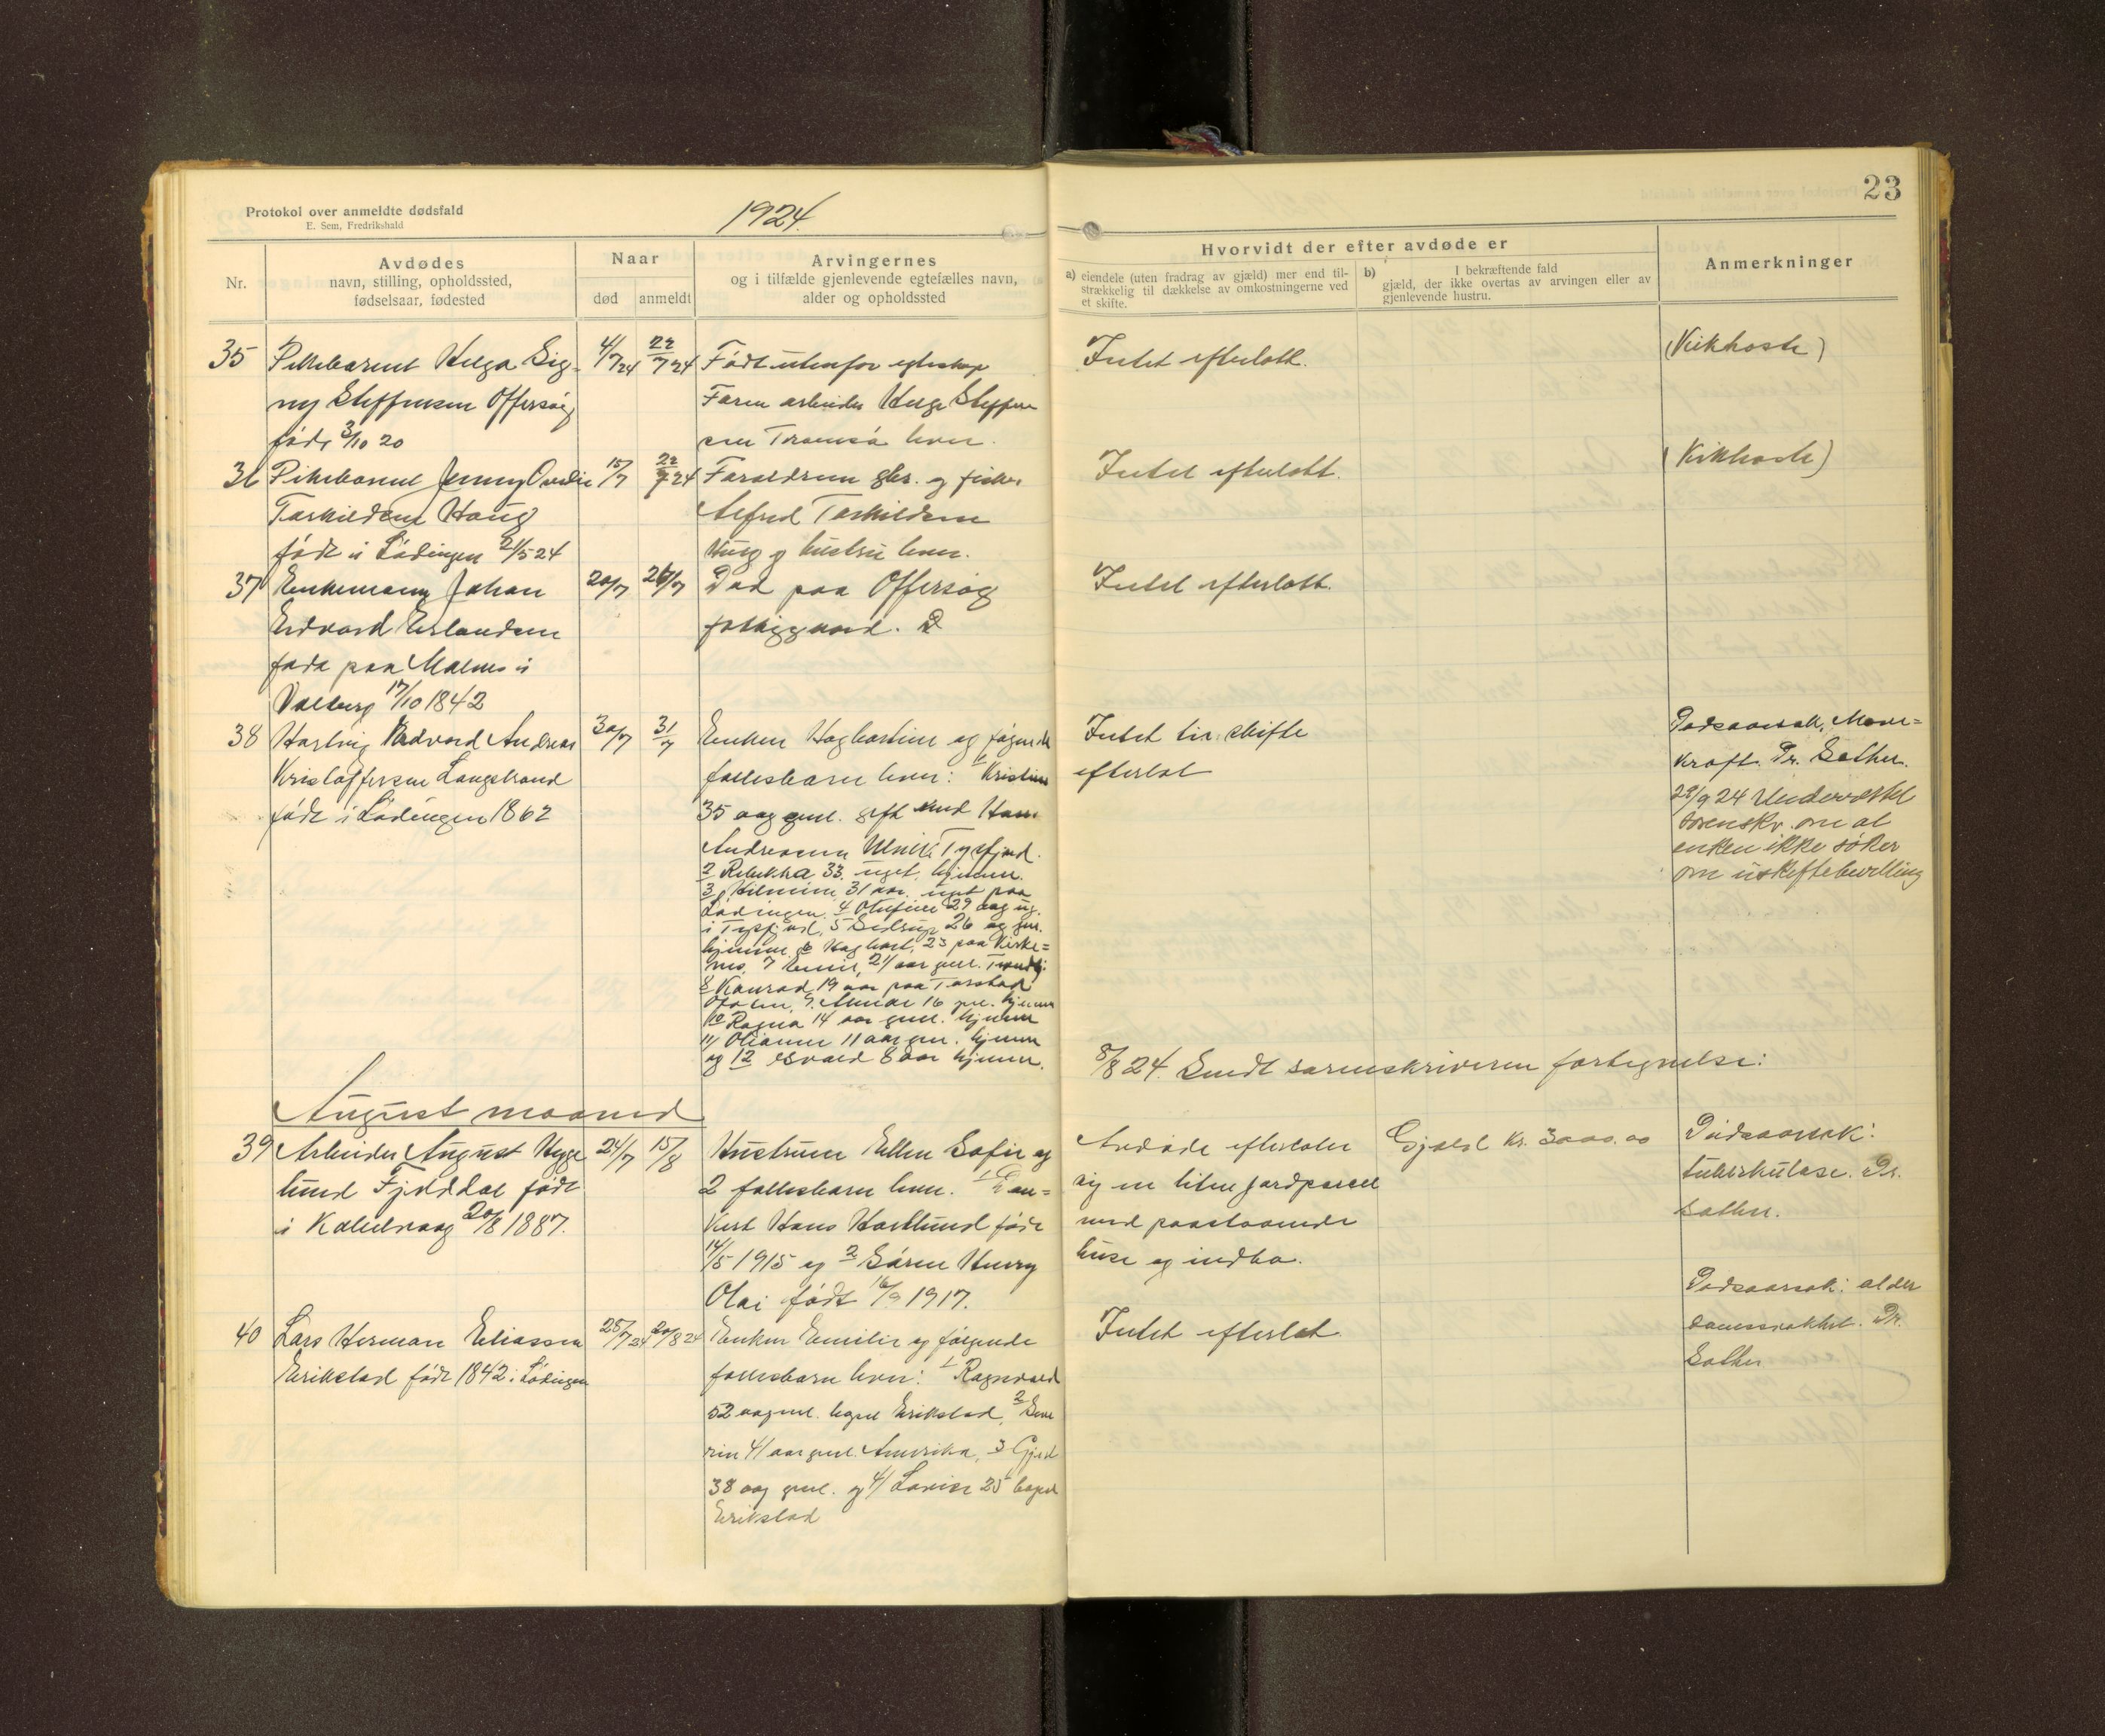 Protokol over anmeldte dødsfald
E. Sem, Fredrikshald
1924.
23
Nr.
Avdødes
navn, stilling, opholdssted,
fødselsaar, fødested
Naar
død
anmeldt
Arvingernes
og i tilfælde gjenlevende egtefælles navn,
alder og opholdssted
Hvorvidt der efter avdøde er
a) eiendele (uten fradrag av gjæld) mer end til-
strækkelig til dækkelse av omkostningerne ved
et skifte.
b) I bekræftende fald
gjæld, der ikke overtas av arvingen eller av
gjenlevende hustru.
Anmerkninger
35
Pikebarnet Helga Sig-
ny Steffensen Offersøy
født 3/10 20
4/7 24
22/7 24
Født utenfor egteskap
Faren arbeider Helge Steffen
sen Tromsø lever.
Intet efterlatt.
(Kikhoste)
36
Pikebarnet Jenny Ovedie
Torkildsen Haug
født i Lødingen 21/5 24
15/7
22/7 24
Foreldrene gbr. og fisker
Alfred Torkildsen
Haug og hustru lever.
Intet efterlatt.
(Kikhoste)
37
Enkemann Johan
Edvard Erlandsen
født paa Malnes i
Valberg 17/10 1842
20/7
26/7
Død paa Offersøy
fattiggaard.
Intet efterlatt.
38
Hartvig Edvard Andreas
Kristoffersen Langstrand
født i Lødingen 1862
30/7
31/7
Enken Hagbartine og følgende
fællesbarn lever: 1 Kristine
35 aar gml. gift med Hans
Andreassen Tysfjord.
2 Rebekka 33 ugift hjemme.
3 31 aar, ugift paa
Lødingen. 4 29 aar ug.
i Tysfjord, 5 26 aar gml.
hjemme 6 Hagbart, 23 paa Kirke=
nes, 7 Emil, 21 aar gml.
8 Konrad 19 aar paa
9. 16 gml. hjemme
10 Ragna 14 aar gml. hjemme
11 11 aar gml. hjemme
og 12 8 aar hjemme.
Intet til skifte
efterlat
Dødsaarsak, Mave=
kræft. Dr. Sæther.
23/9 24 Underrettet
sorenskr. om at
enken ikke søker
om uskiftebevilling
8/8 24. Sendt sorenskriveren fortegnelse:
August maaned
39
Arbeider August Hygge
lund Fjelddal født
i Kabelvaag 20/8 1887.
24/7
15/8
Hustruen Ellen Sofie og
2 fællesbarn lever. 1
Hans født
14/5 1915 og 2 Søren Henry
Olai født 16/9 1917.
Avdøde efterlater
sig en liten jordparcel
med paastaaende
huse og indbo.
Gjæld kr. 3000.00
Dødsaarsak:
tuberkulose. Dr.
Sæther.
40
Lars Herman Eliassen
Erikstad født 1842 i Lødingen
25/7 24
20/8 24
Enken Emilie og følgende
fællesbarn lever: 1 Ragnvald
52 aar gml. Erikstad, 2 Seve
rin 41 aar gml. Amerika, 3
38 aar gml. og 4/ Lovise 25
Erikstad
Intet efterlat.
Dødsaarsak: alder
domssvakhet. Dr.
Sæther